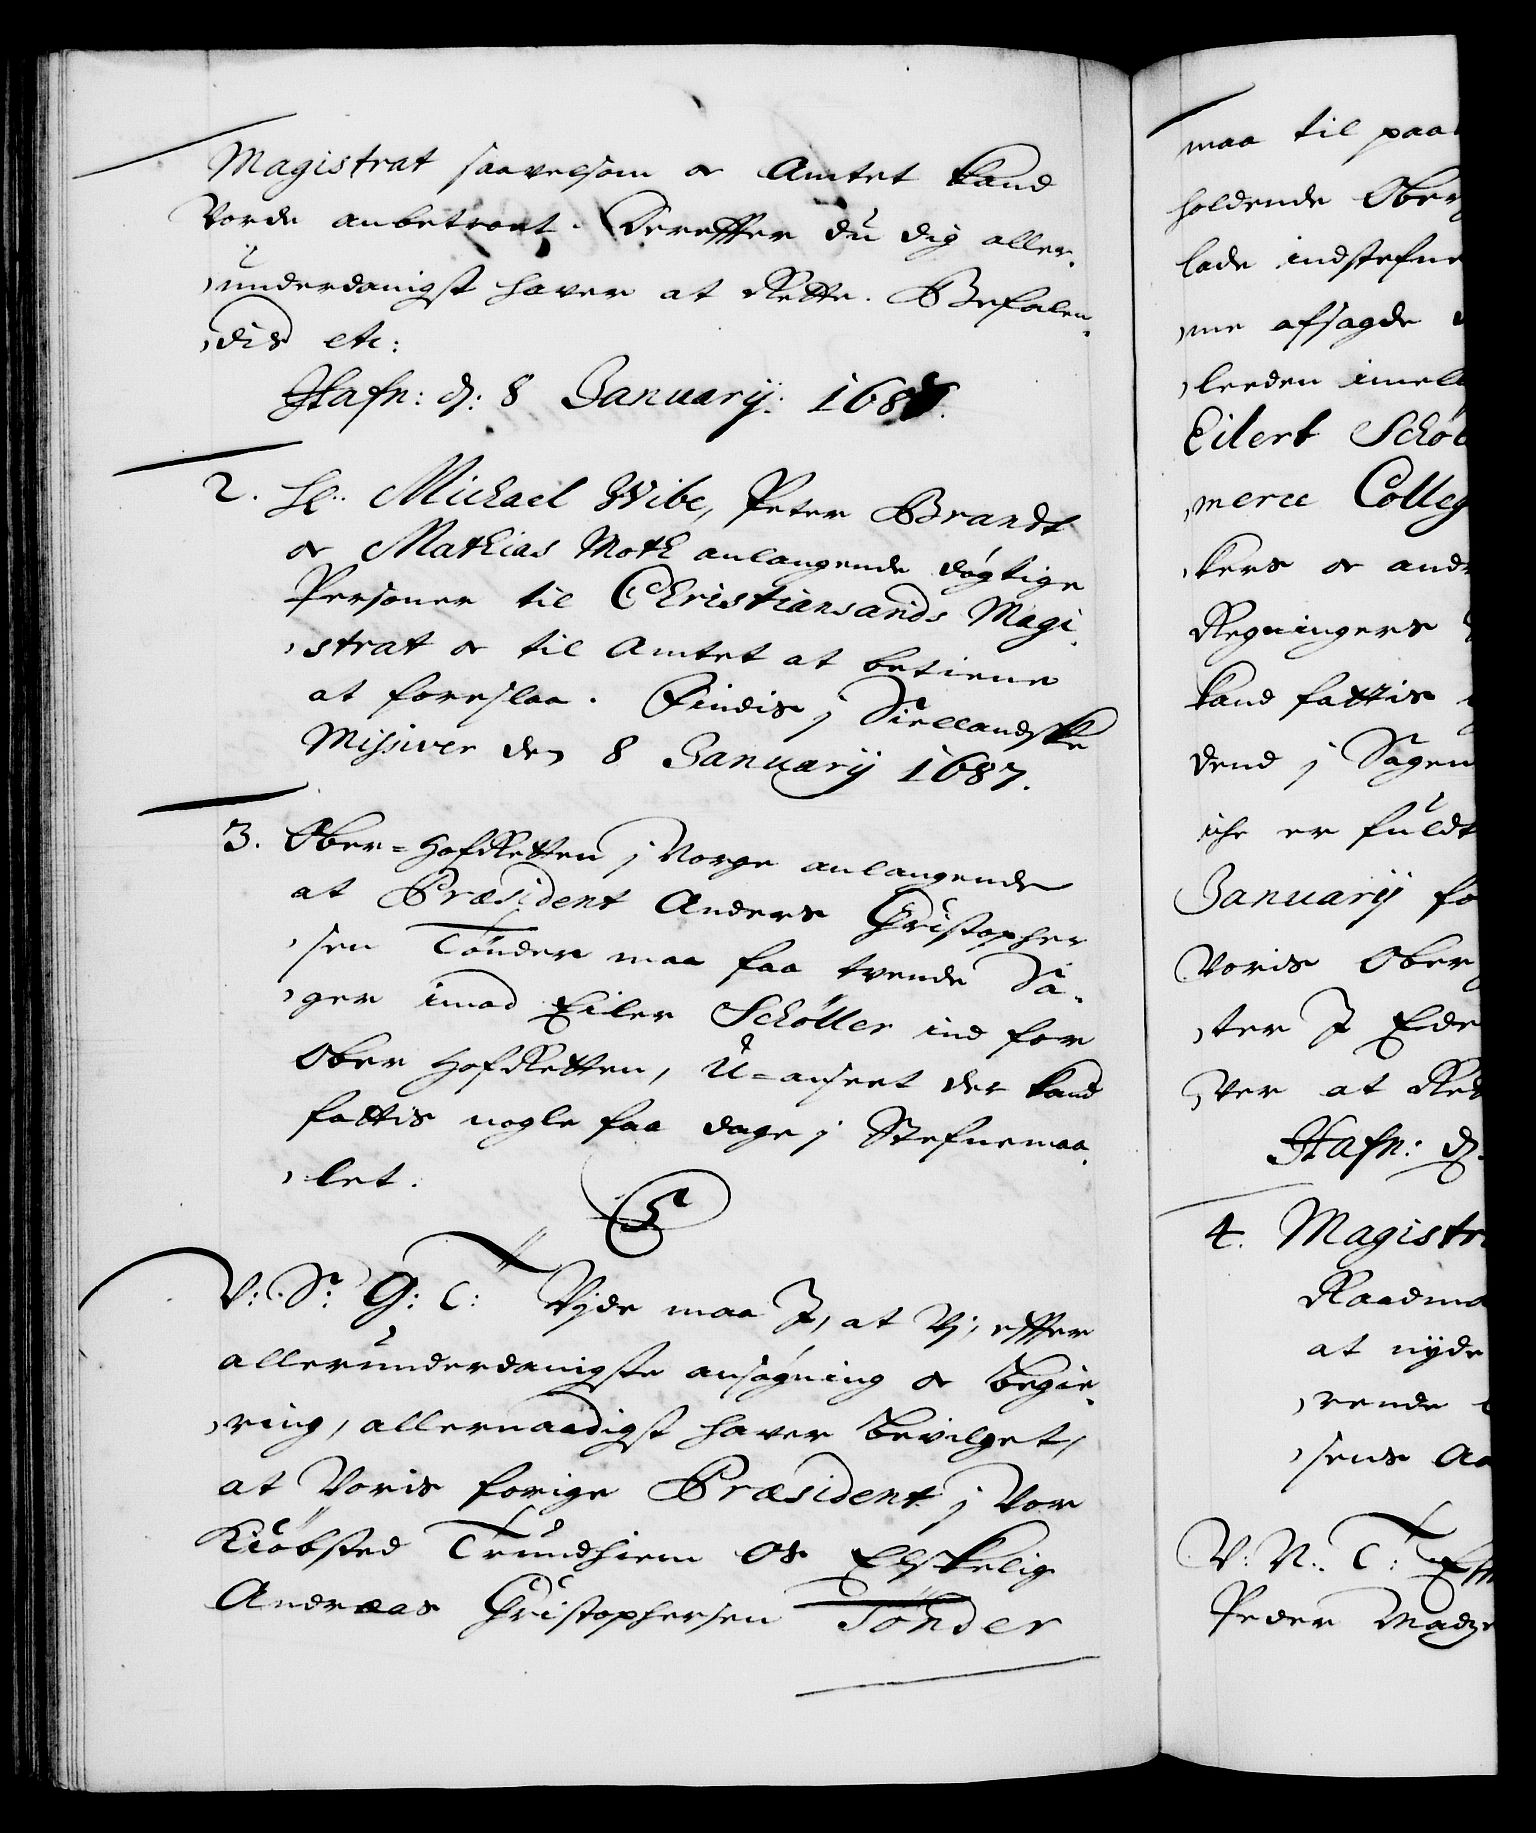 Magistrat saavelsom og Amtet kand
vorde anbetroet. Dereffter du dig aller,
underdanigst haver at Rette. Befalen,
dis etc:
Hafn: d: 8 January: 1687.
2. Hr: Michael Wibe, Peter Brandt
og Mathias Moth anlangende døgtige
Personer til Christiansands Magi,
strat og til Amtet at betiene
at foreslaa. Findis j Siellandske
Missiver den 8 January 1687.
3. Ober-HofRetten j Norge anlangende
at Præsident Anders Christopher
sen Tönder maa faa tvende Sa,
ger imod Eiler Schöller ind for
Ober HofRetten, U-anseet der kand
fattis nogle faa dage j Stefnemaa,
let.
C5
V: Sr: G: T: Vjde maa J, at Vj, effter
allerunderdanigste ansøgning og begie,
ring, allernaadigst haver bevilget,
at Voris forige Præsident j vor
Kiöbsted Trundhiem Os Elskelig
Andreas Christophersen Tönder
maa til paa
holdende Ober
lade indstefne
me afsagde
leeden imell
Eilert Schöl
merce Colleg
kers og andr
Regningers
kand fattis
dend j Sagen
iche er fuldt
January fo
Voris Ober
ter J Eder
ver at Ret
Hafn: d.
4. Magistr
Raadma
at nyde
rende
sens Aa
V: N: T: Eff
Peder Madz